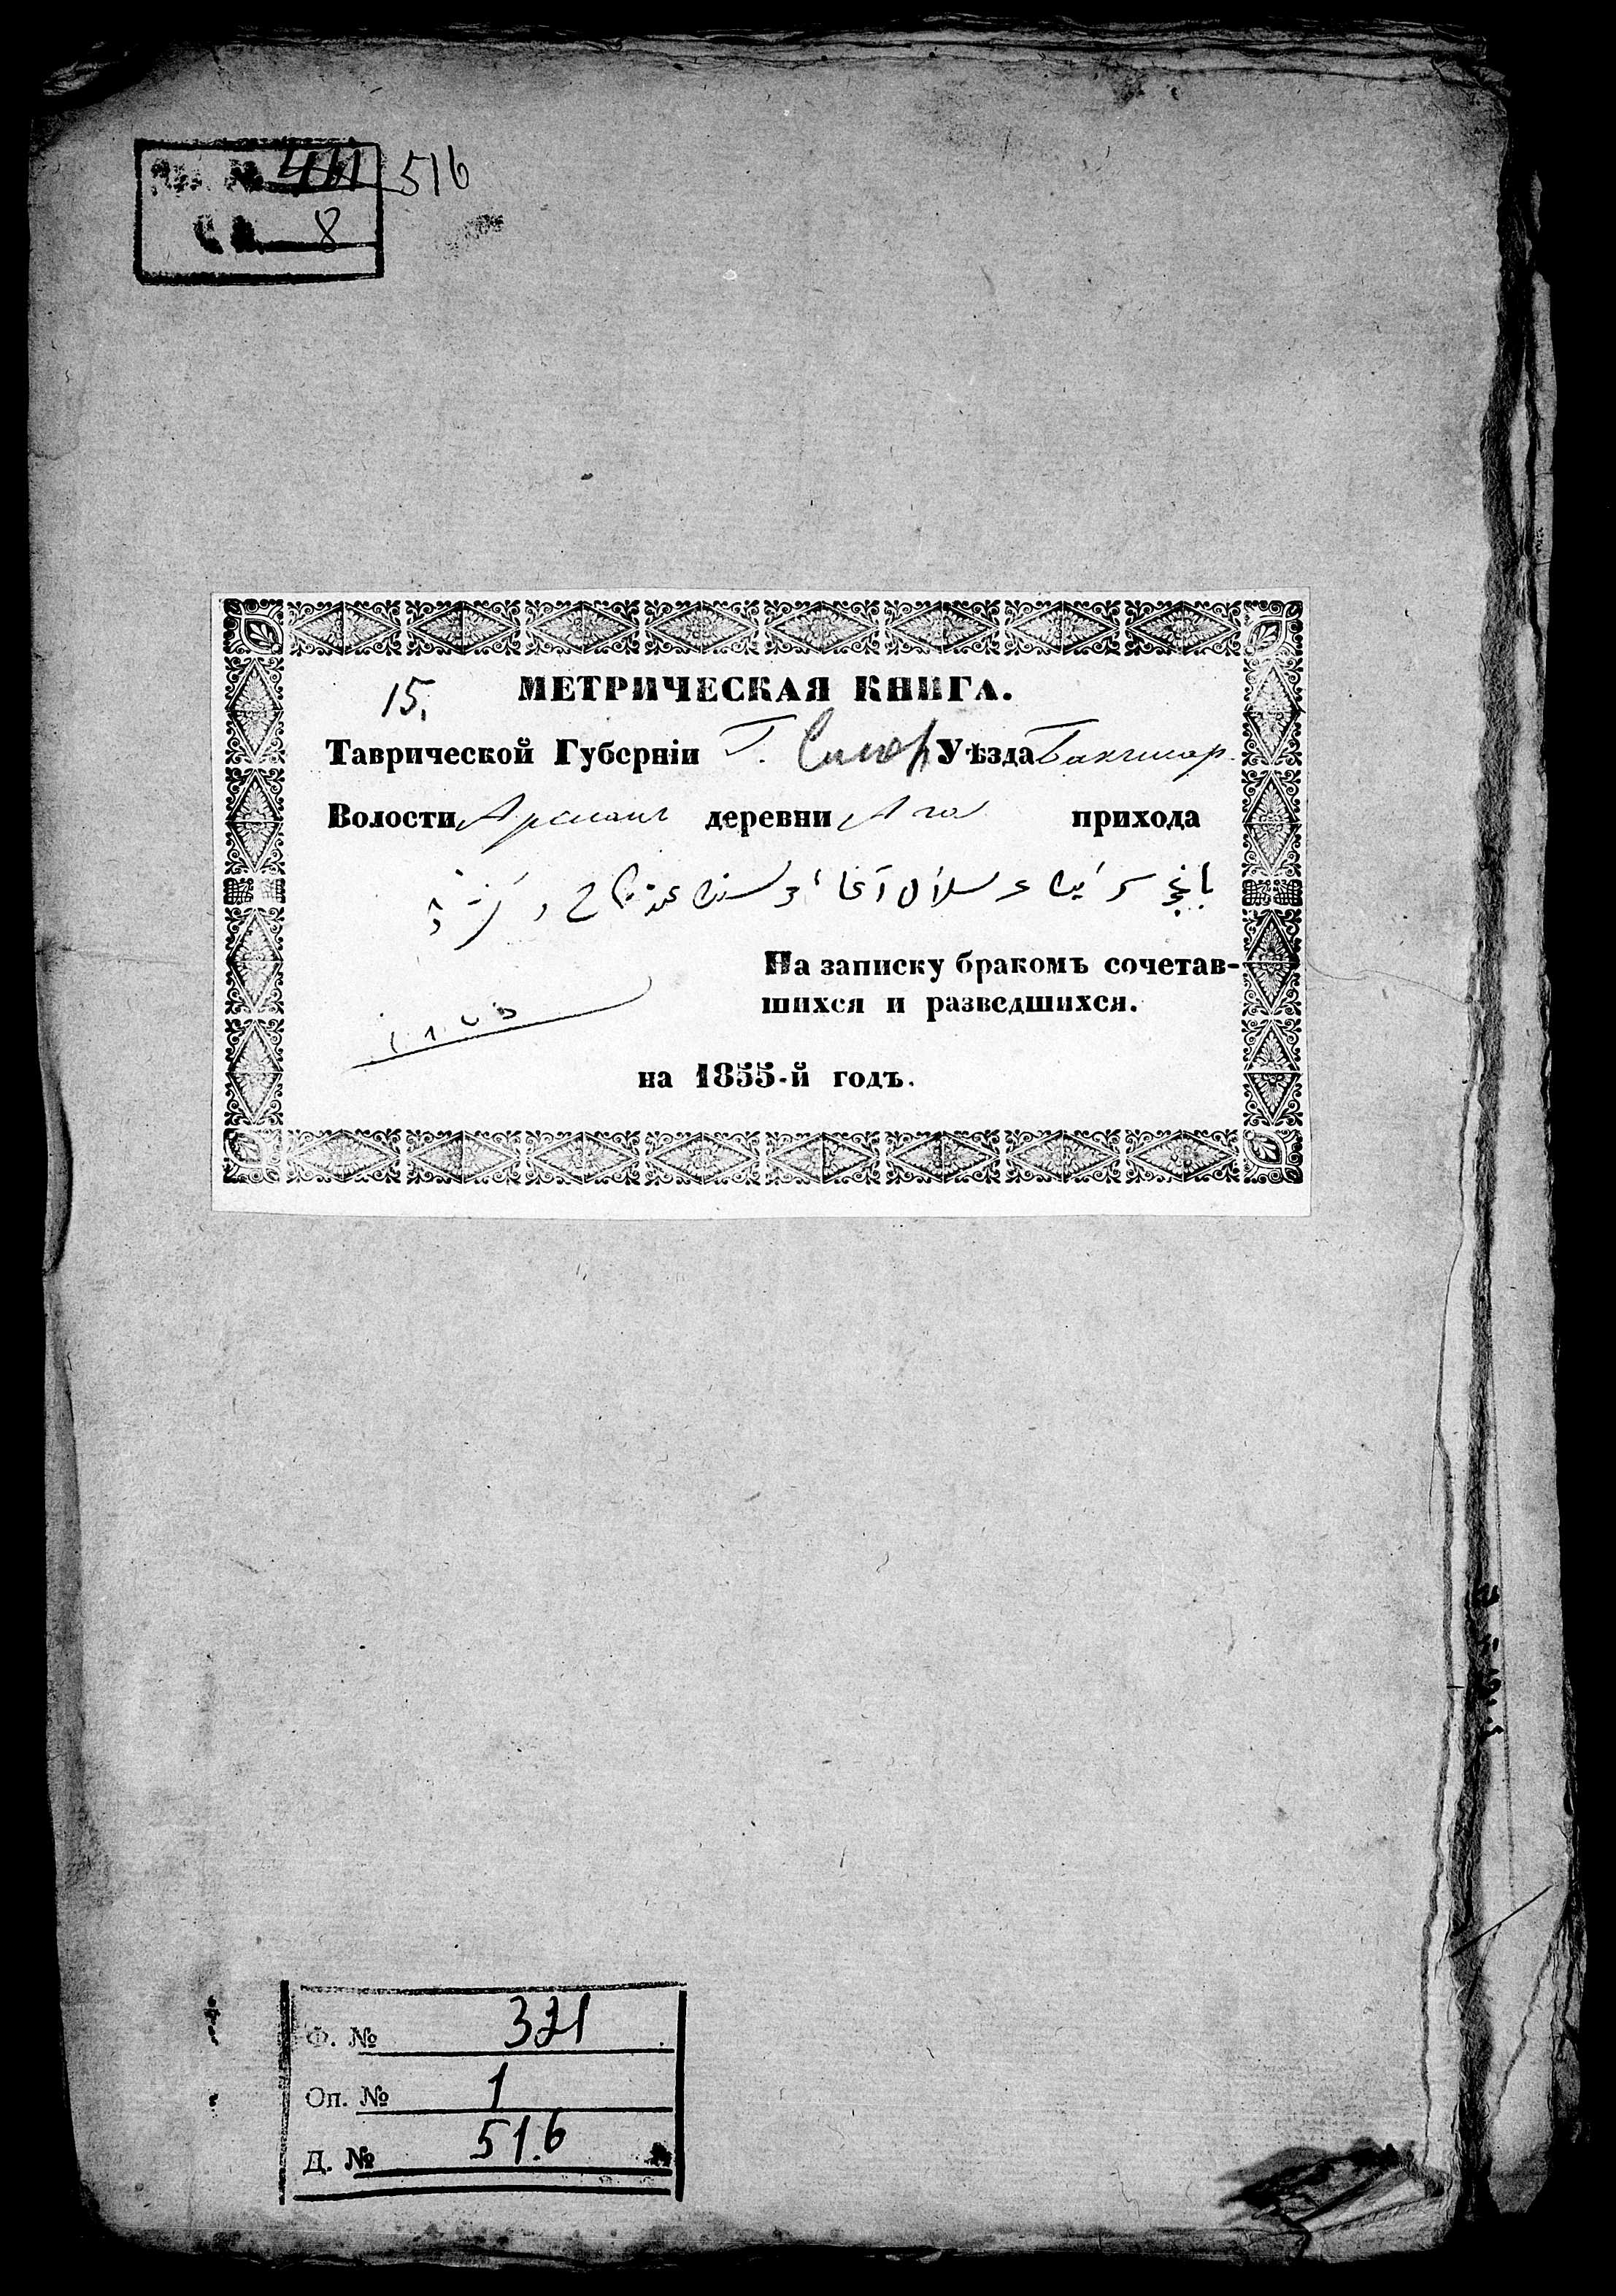 411 516
8
15. МЕТРИЧЕСКАЯ КНИГА.
Таврической Губерніи Г. Симф Уѣзда Бахчисар.
Волости Арсланъ деревни Ага прихода
آغا نكاح و
На записку бракомъ сочетав-
шихся и разведшихся.
١٨٥٥
на 1855-й годъ.
Ф. № 321
Оп. № 1
Д. № 516